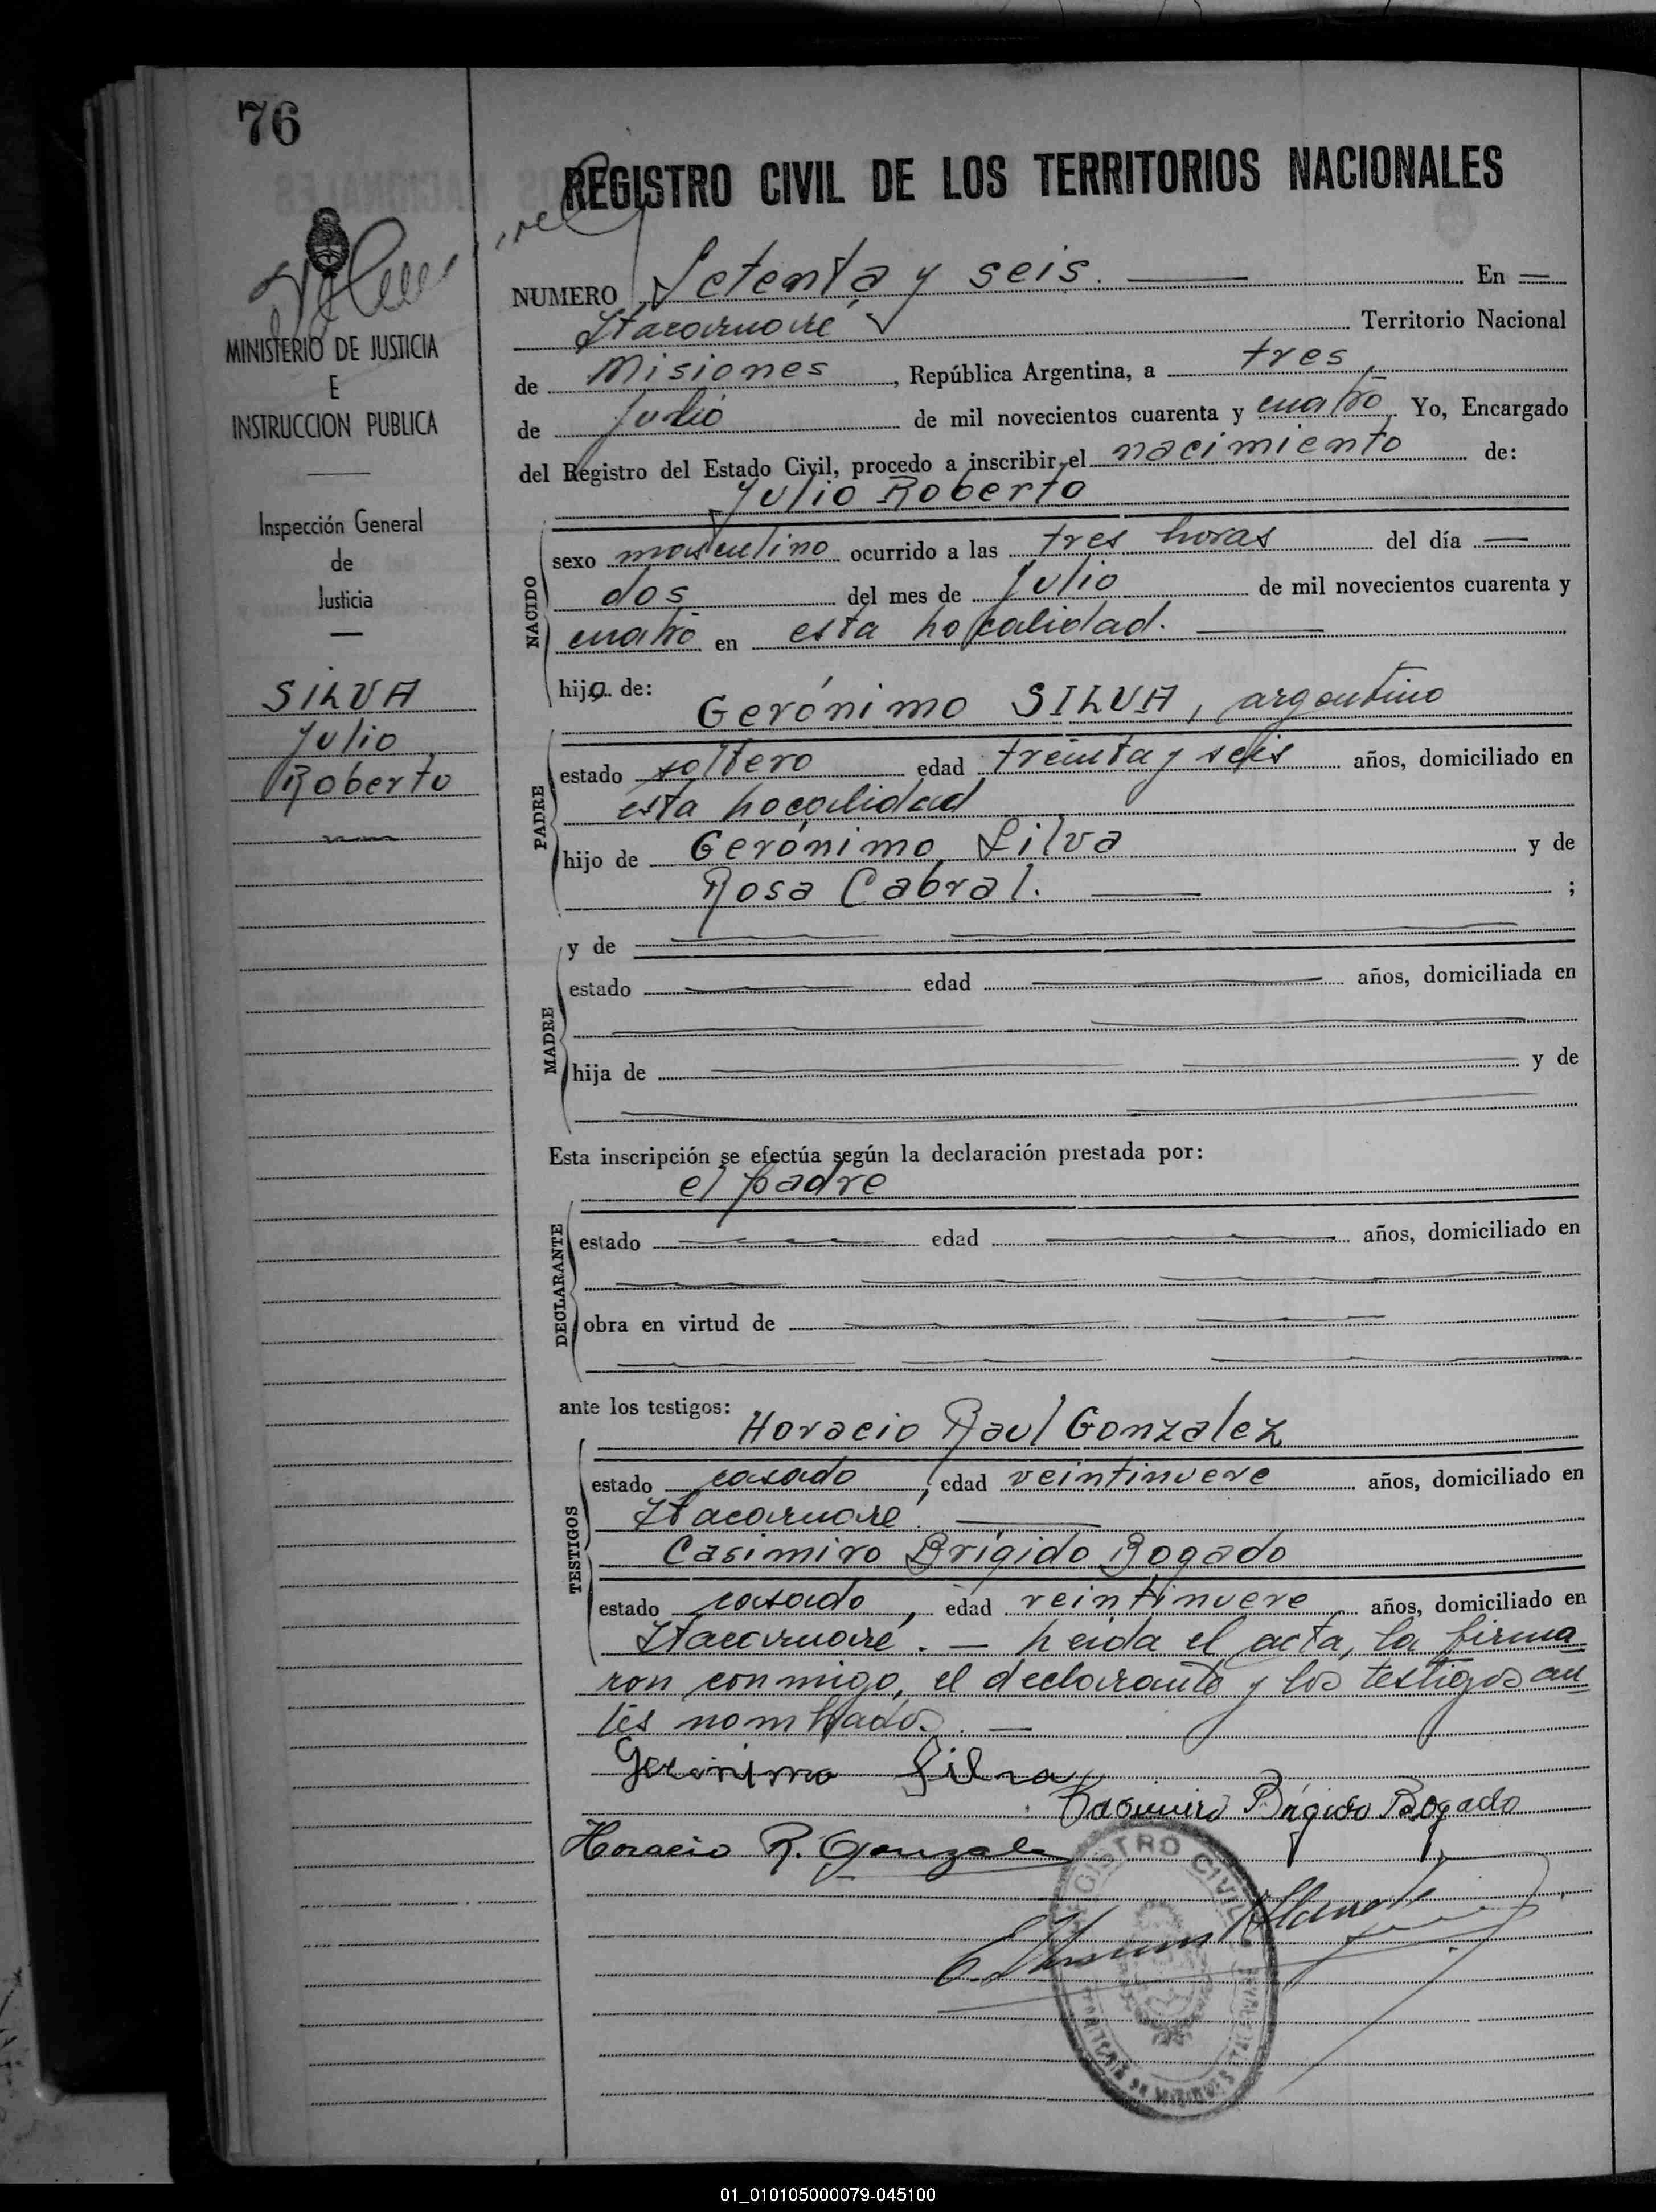 76
REGISTRO CIVIL DE LOS TERRITORIOS NACIONALES
MINISTERIO DE JUSTICIA
E
INSTRUCCION PUBLICA
Inspección General
de
Justicia
SILVA
Julio
Roberto
NUMERO Setenta y seis. En
Itacaruaré Territorio Nacional
de Misiones, República Argentina, a tres
de Julio de mil novecientos cuarenta y cuatro Yo, Encargado
del Registro del Estado Civil, procedo a inscribir el nacimiento de:
Julio Roberto
NACIDO
sexo masculino ocurrido a las tres horas del día
dos del mes de Julio de mil novecientos cuarenta y
cuatro en esta Localidad.
hijo de: Gerónimo SILVA, argentino
PADRE
estado soltero edad treinta y seis años, domiciliado en
esta Localidad
hijo de Gerónimo Silva y de
Rosa Cabral. ;
MADRE
y de
estado edad años, domiciliada en
hija de y de
Esta inscripción se efectúa según la declaración prestada por:
el padre
DECLARANTE
estado edad años, domiciliado en
obra en virtud de
ante los testigos: Horacio Raul Gonzalez
TESTIGOS
estado casado, edad veintinueve años, domiciliado en
Itacaruaré.
Casimiro Brígido Bogado
estado casado, edad veintinueve años, domiciliado en
Itacaruaré. — Leida el acta, la firma=
ron conmigo, el declarante y los testigos an=
tes nombrados. —
Gerónimo Silva
Casimiro Brígido Bogado
Horacio R. Gonzalez
REGISTRO CIVIL
TERRITORIO DE MISIONES
01_010105000079-045100